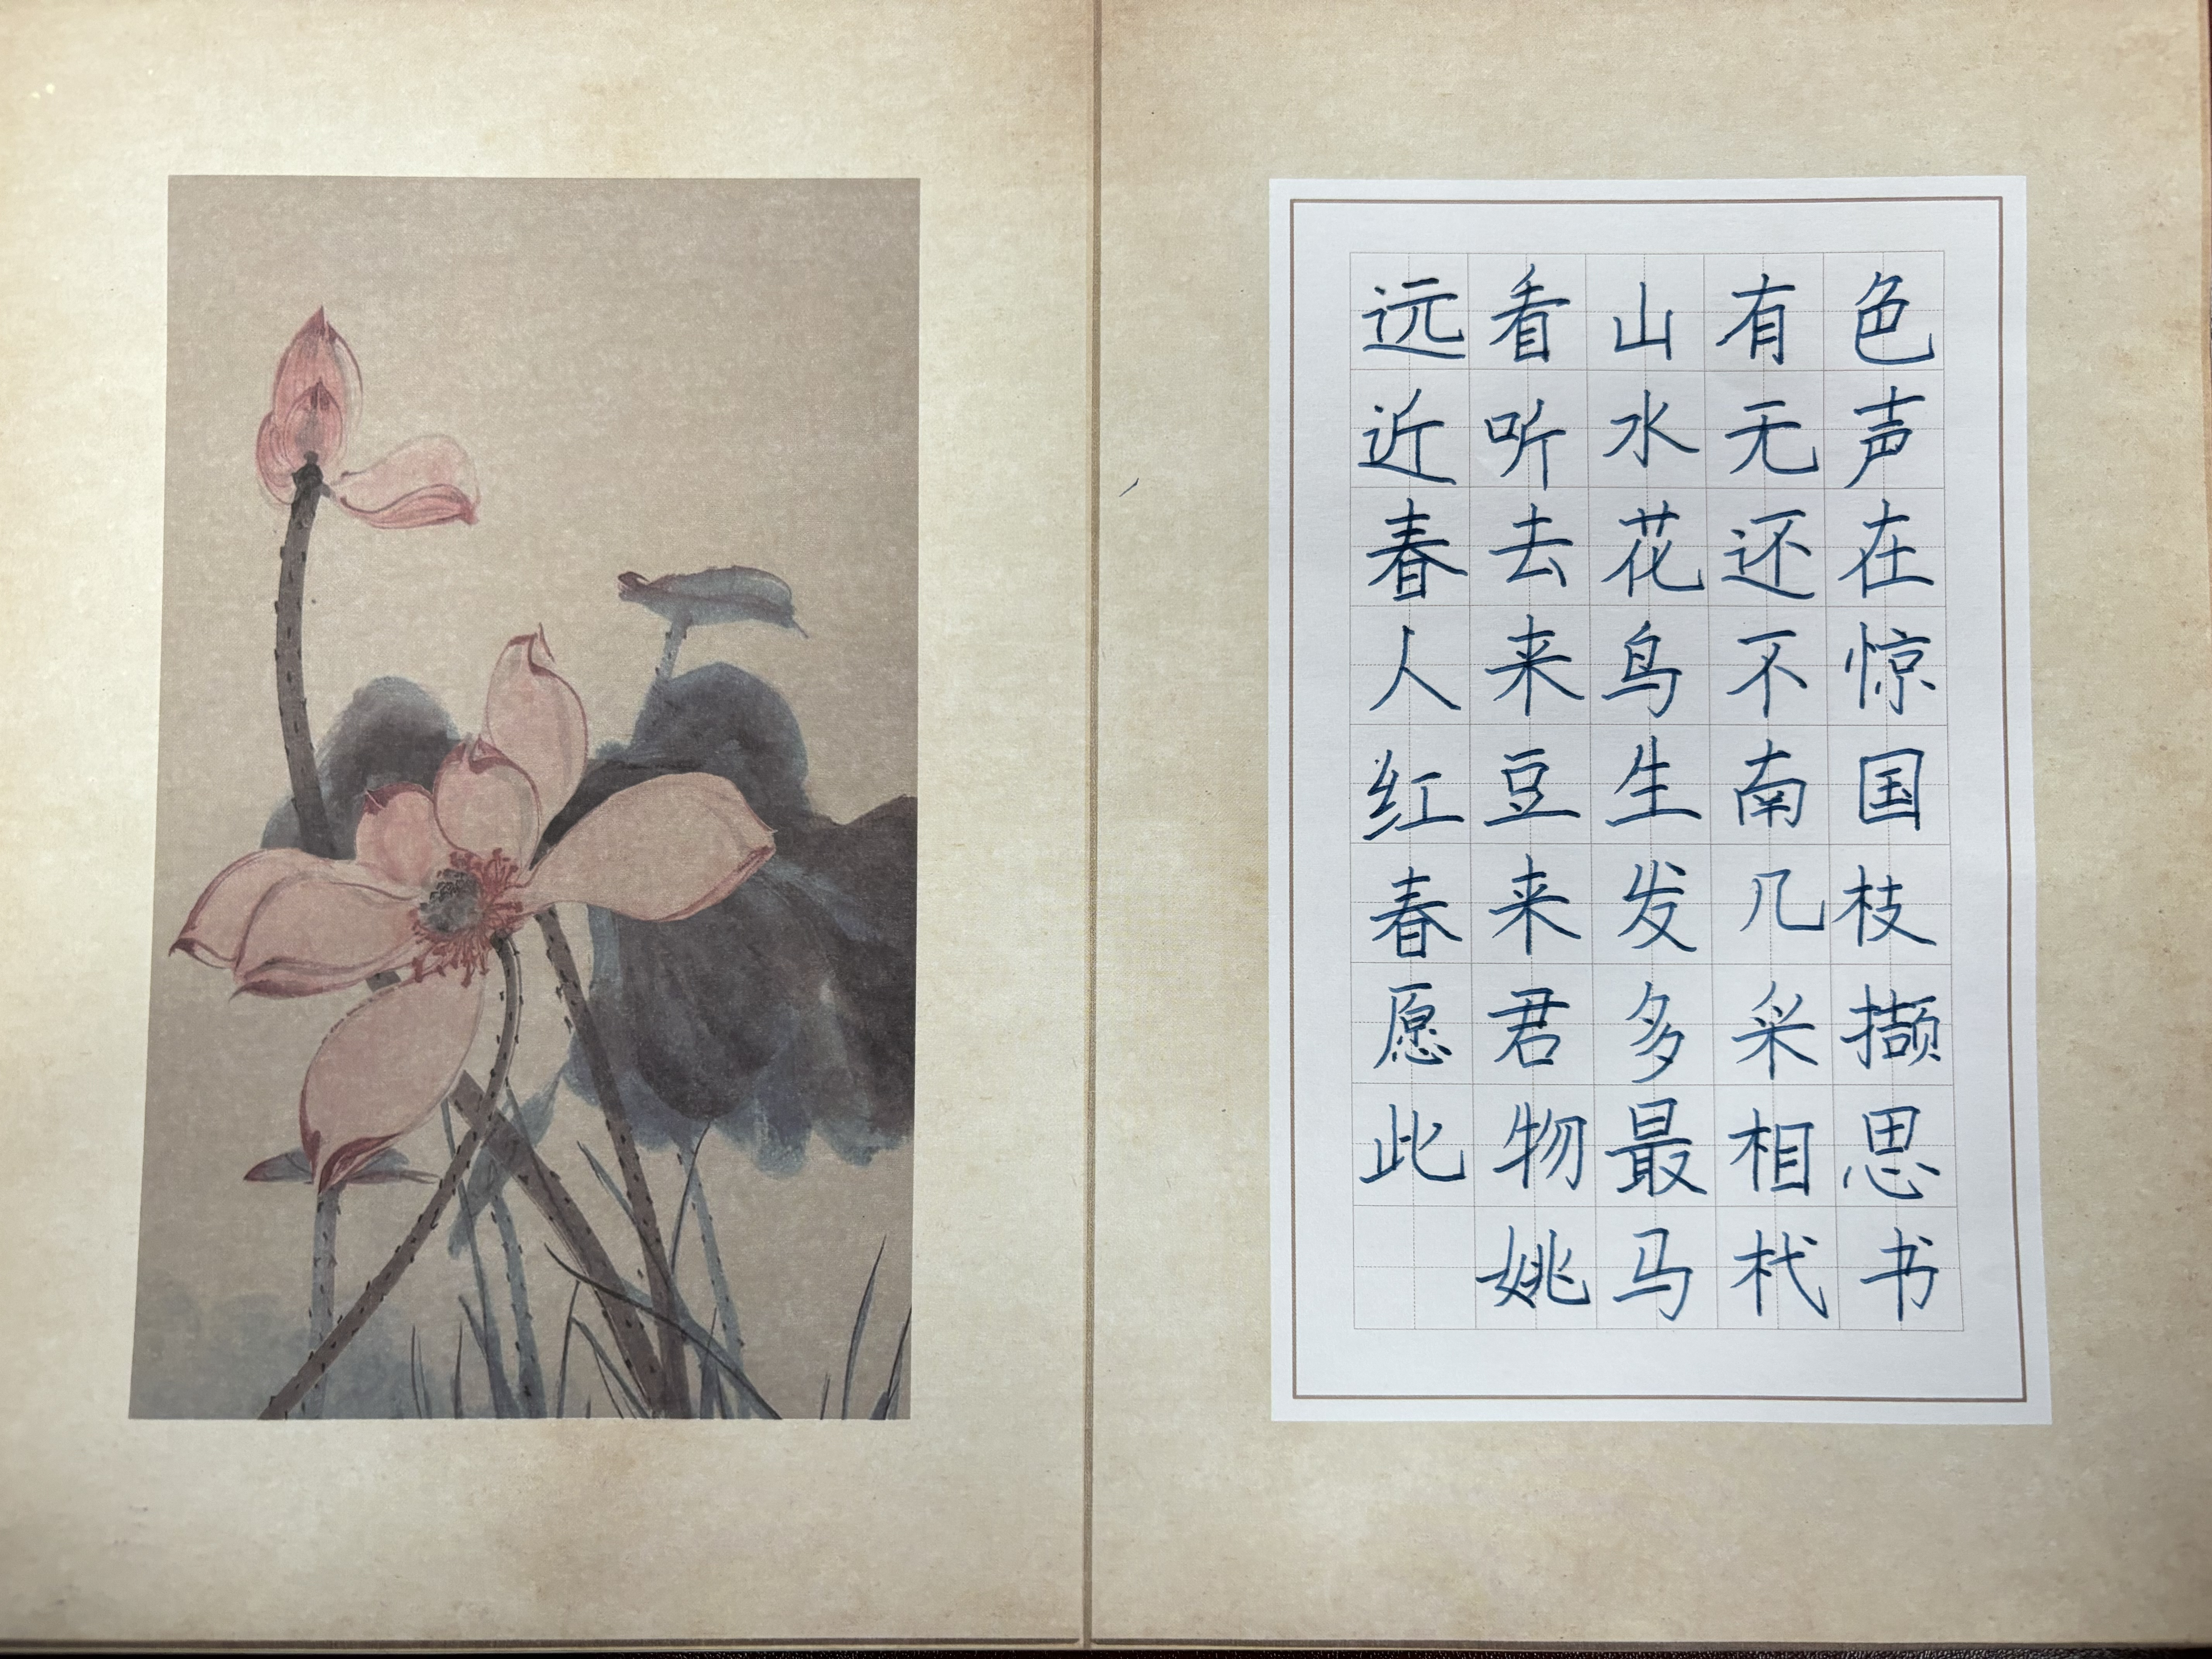 远看山有色
近听水无声
春去花还在
人来鸟不惊
红豆生南国
春来发几枝
愿君多采撷
此物最相思
姚马杙书